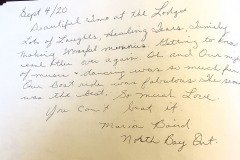 Sept 4/20
Beautiful time at the Lodge
Lots of Laughs, Healing Tears, Family
Making memories. Getting to know
one another over again Oh and Our night
of music & dancing was so much fun
Our Boat ride was fabulous The
was the best. So much Love.
You can't beat it
Marion Baird
North Bay Ont.